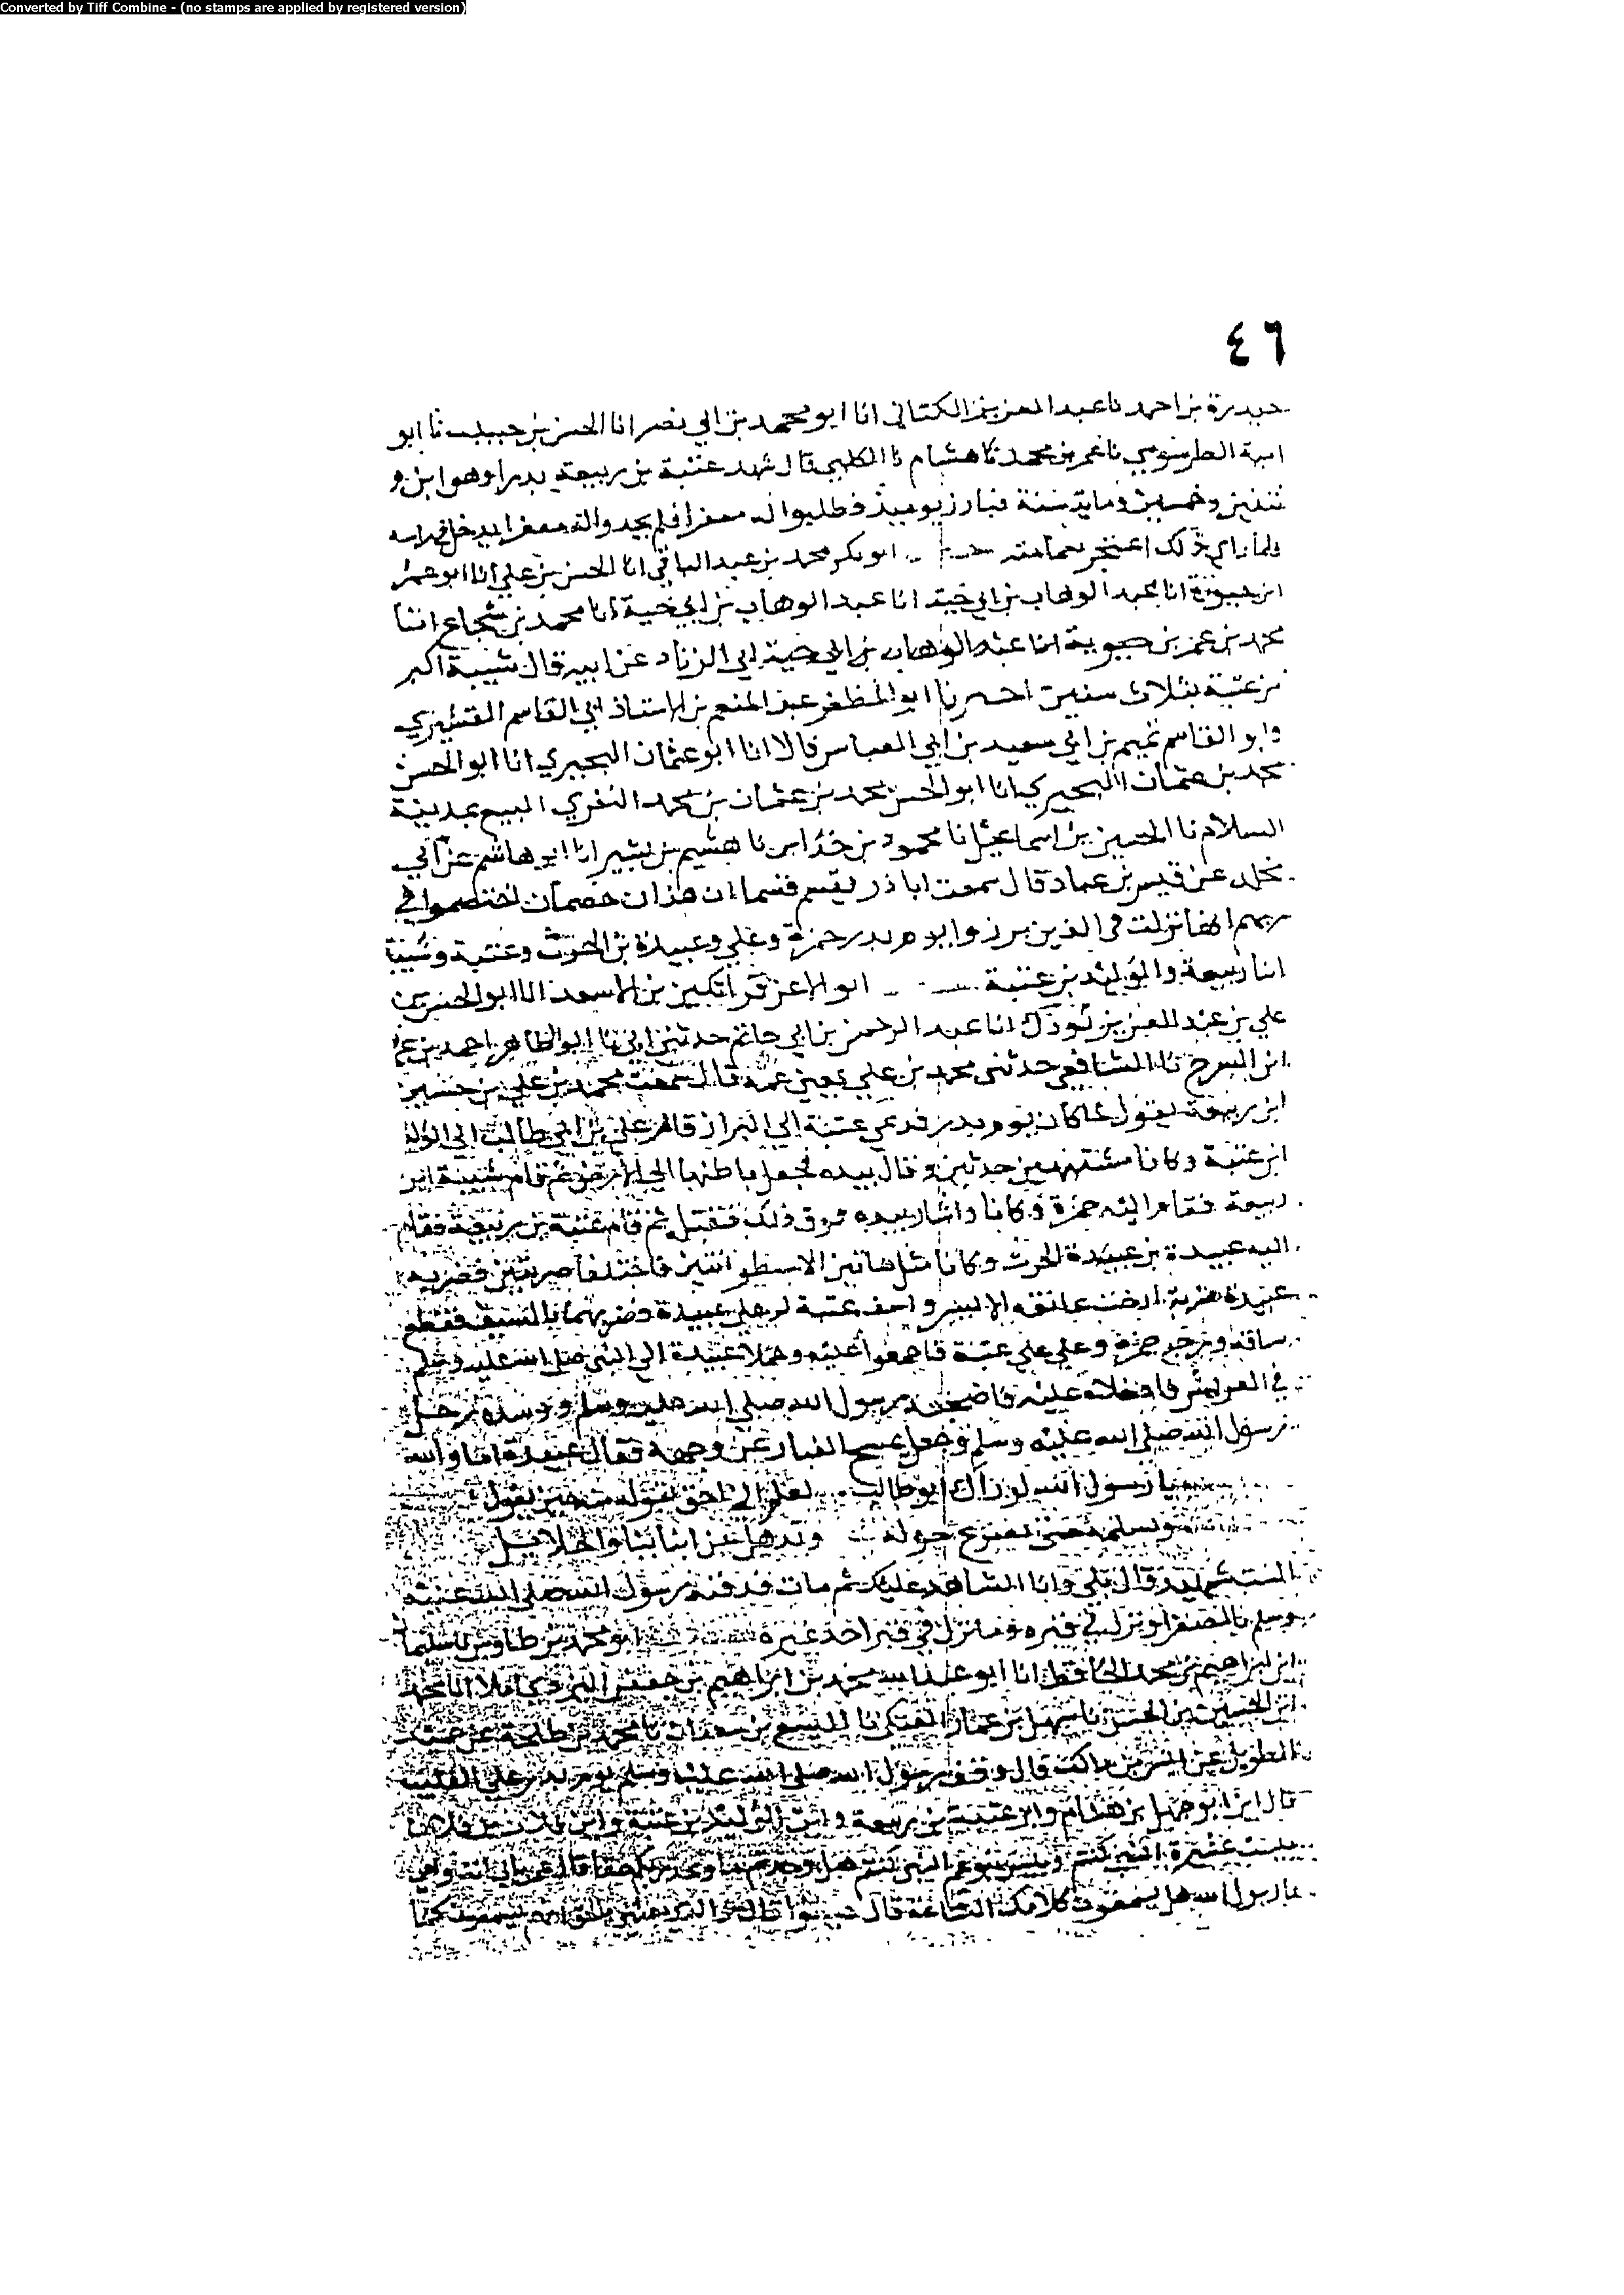 Converted by Tiff Combine - (no stamps are applied by registered version)
٤٦
حيدرة بن احمد نا عبد العزيز الكتاني انا ابو محمد بن ابي نصر انا الحسن بن حبيب نا ابو
امية الطرسوسي نا عمر بن محمد نا هشام نا الكلبي قال شهد عتبة بن ربيعة بدرا وهو ابن
وخمسين ومايه سنة فبارز يوميذ فطلبوا له مغفرا فلم يجدوا له مغفرا يدخل في راسه
فلما راي ذلك اعتجر بعمامته ابو بكر محمد بن عبد الباقي انا الحسن بن علي انا ابو عمر
ابن حيوية انا عبد الوهاب بن ابي حية انا عبد الوهاب بن ابي حية انا محمد بن شجاع
محمد بن عمر بن حيوية انا عبد الوهاب بن ابي حية ابي الزناد عن ابيه قال شيبة اكبر
من عتبة بثلاث سنين انا ابو المظفر عبد المنعم بن الاستاذ ابي القاسم القشيري
وابو القاسم تميم بن ابي سعيد بن ابي العباس قالا انا ابو عثمان البحيري انا ابو الحسن
محمد بن عثمان البحيري انا ابو الحسن محمد بن عثمان بن محمد النفري البيع بمدينة
السلام نا الحسين بن اسماعيل نا محمود بن خداس نا هشيم بن بشير انا ابو هاشم عن ابي
مخلد عن قيس بن عباد قال سمعت ابا ذر يقسم قسما ان هذان خصمان اختصموا في
ربهم انها نزلت في الذين برزوا يوم بدر حمزة وعلي وعبيدة بن الحرث وعتبة وشيبة
ابنا ربيعة والوليد بن عتبة ابو الاعز قراتكين بن الاسعد انا ابو الحسن بن
علي بن عبد العزيز بن انا عبد الرحمن بن ابي حاتم حدثني ابي نا ابو الطاهر احمد بن
ابن السرح نا الشافعي حدثني محمد بن علي يعني عمه قال سمعت محمد بن علي بن حسين
ابن ربيعة يقول لما كان يوم بدر فدعي عتبة الي البراز قام علي بن ابي طالب الي الوليد
ابن عتبة وكانا مشتبهين حدثين وقال بيده فجعل باطنها الي الارض ثم قام شيبة ابن
ربيعة فقام اليه حمزة وكانا واشار بيده فوق ذلك فقتل ثم قام عتبة بن ربيعة فقام
اليه عبيدة بن عبيدة الحرث وكانا مثل هاتين الاسطوانتين فاختلفا ضربتين فضربه
عبيدة ضربة ارخت عاتقه الايسر واسف عتبة لرجلي عبيدة وضربهما بالسيف فقطع
ساقه ورجع حمزة وعلي علي عتبة فاجمعوا عليه وحملا عبيدة الي النبي صلي الله عليه وسلم
في العريش فادخلاه عليه فاضجعه رسول الله صلي الله عليه وسلم ووسده رجل
رسول الله صلي الله عليه وسلم وجعل يمسح الغبار عن وجهه فقال عبيدة اما والله
يا رسول الله لو راك ابو طالب لعلم اني احق بقوله منه حين يقول
ونسلمه حتي نصرع حوله ونذهل عن ابنائنا والحلايل
الست شهيد قال بلي وانا الشاهد عليك ثم مات فدفنه رسول الله صلي الله عليه
وسلم بالصفرا ونزل في قبره وما نزل في قبر احد غيره ابو محمد بن طاوس نا سليمان
ابن ابراهيم بن محمد الحافظ انا ابو عبد الله محمد بن ابراهيم بن جعفر املا انا محمد
ابن الحسين بن الحسن نا سهل بن عمار العتكي نا اليسع بن سعدان نا محمد بن طلحة عن حميد
الطويل عن انس بن مالك قال وقف رسول الله صلي الله عليه وسلم يوم بدر علي القليب
قال اين ابو جهل بن هشام واين عتبة بن ربيعة واين الوليد بن عتبة واين فلان بن فلان
بيست عشيرة النبي كنتم وبيس بنو عم النبي كنتم هل وجدتم ما وعد ربكم حقا قال
يا رسول الله هل يسمعون كلامك الساعة قال